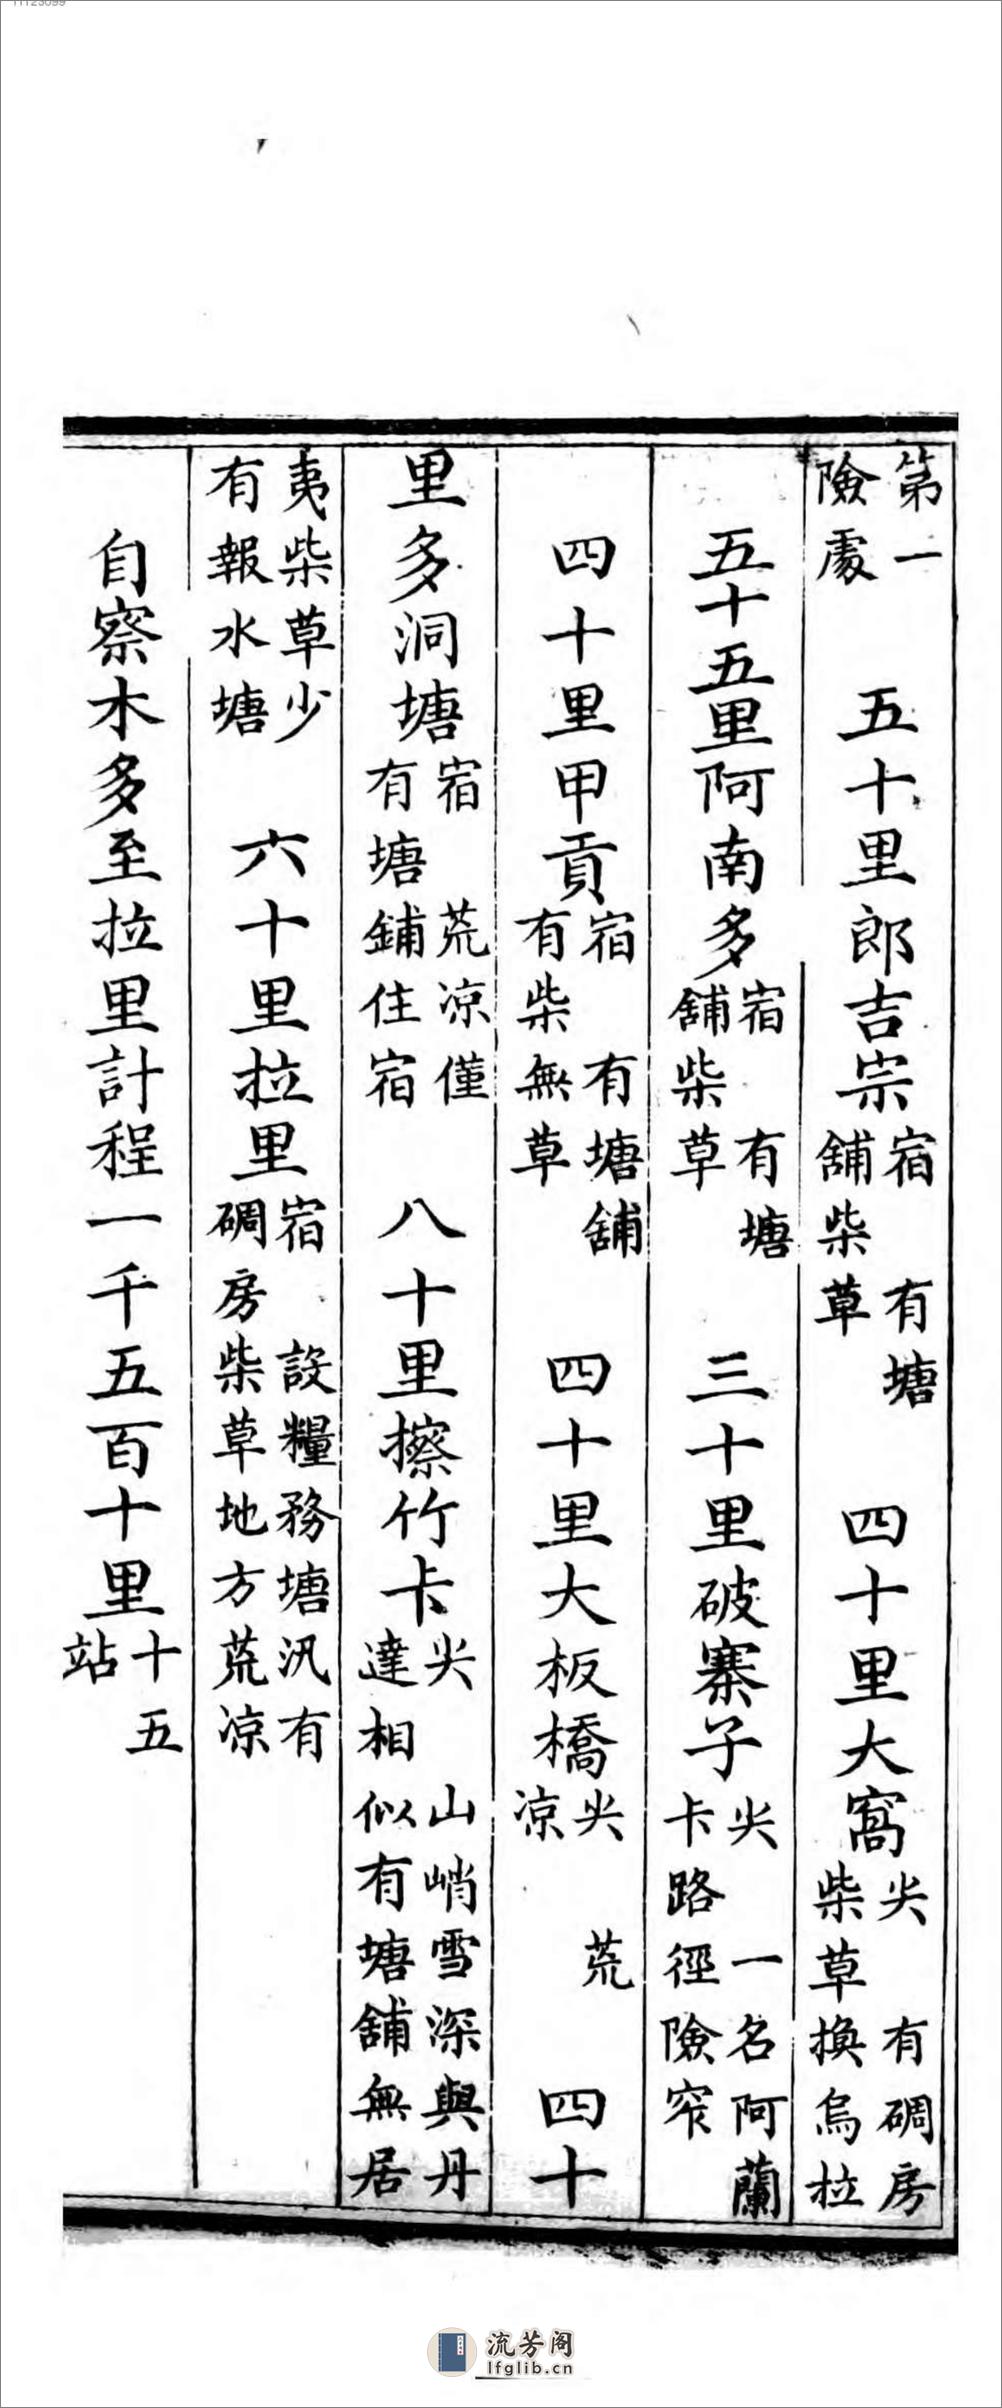 第一險處 五十里郎吉宗宿 有塘舖柴草 四十里大窩尖 有碉房柴草換烏拉
五十五里阿南多宿 有塘舖柴草 三十里破寨子尖 一名阿蘭卡路徑險窄
四十里甲貢宿 有塘舖有柴無草 四十里大板橋尖 荒凉 四十
里多洞塘宿 荒凉僅有塘鋪住宿 八十里擦竹卡尖 山峭雪深與丹達相似有塘舖無居
夷柴草少有報水塘 六十里拉里宿 設糧務塘汛有碉房柴草地方荒凉
自察木多至拉里計程一千五百十里十五站
流芳阁
lfglib.cn